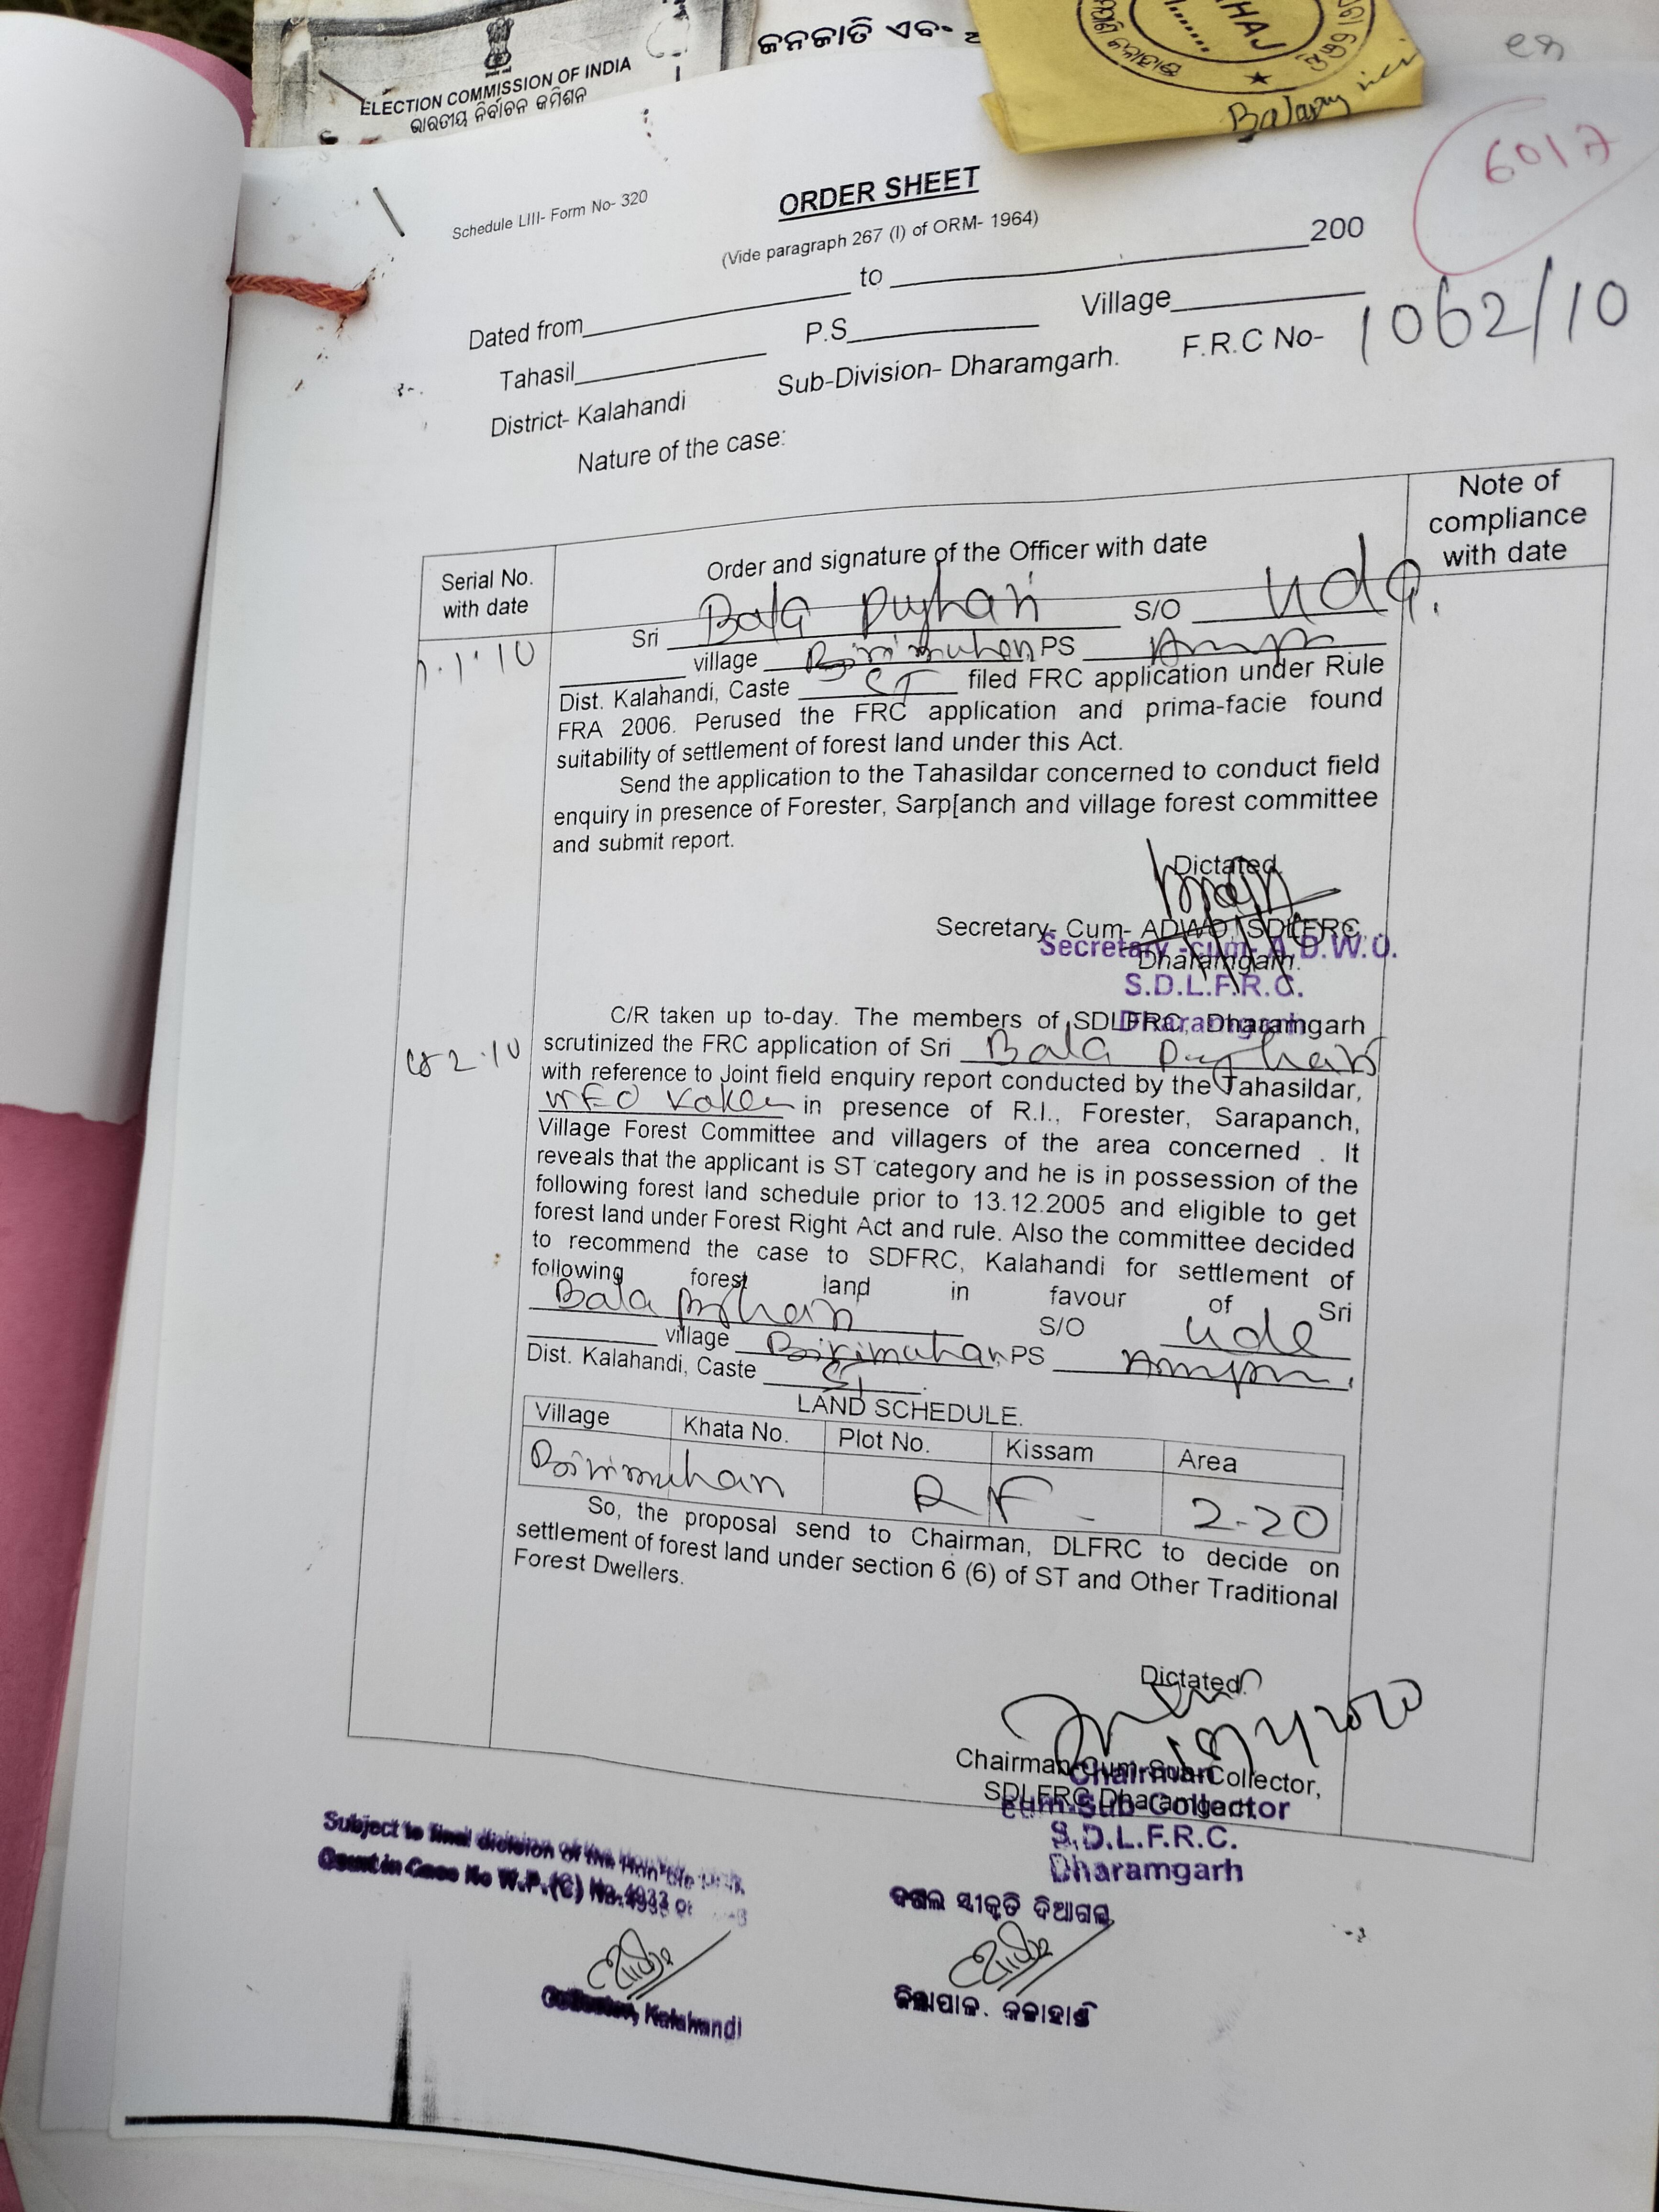 ELECTION COMMISSION OF INDIA
ଭାରତୀୟ ନିର୍ବାଚନ କମିଶନ
ଜନଜାତି ଏବଂ
6017
Schedule LIII- Form No- 320
ORDER SHEET
(Vide paragraph 267 (I) of ORM- 1964)
Dated from to 200
Tahasil P.S Village
District- Kalahandi Sub-Division- Dharamgarh. F.R.C No- 1062/10
Nature of the case:
Serial No. with date
Order and signature of the Officer with date
Note of compliance with date
Sri Bala Pujhari S/O Uda.
village Birimuhan PS
Dist. Kalahandi, Caste ST filed FRC application under Rule
FRA 2006. Perused the FRC application and prima-facie found
suitability of settlement of forest land under this Act.
Send the application to the Tahasildar concerned to conduct field
enquiry in presence of Forester, Sarp[anch and village forest committee
and submit report.
Dictated
Secretary- Cum- ADWO, SDLFRC
Dharamgarh.
Secretary-cum- A.D.W.O.
S.D.L.F.R.C.
Dharamgarh
C/R taken up to-day. The members of SDLFRC, Dharamgarh
2.10 scrutinized the FRC application of Sri Bala Pujhari
with reference to Joint field enquiry report conducted by the Tahasildar,
in presence of R.I., Forester, Sarapanch,
Village Forest Committee and villagers of the area concerned . It
reveals that the applicant is ST category and he is in possession of the
following forest land schedule prior to 13.12.2005 and eligible to get
forest land under Forest Right Act and rule. Also the committee decided
to recommend the case to SDFRC, Kalahandi for settlement of
following forest land in favour of Sri
Bala Pujhari S/O Uda
village Birimuhan, PS
Dist. Kalahandi, Caste ST
LAND SCHEDULE.
Village Khata No. Plot No. Kissam Area
Birimuhan RF 2-20
So, the proposal send to Chairman, DLFRC to decide on
settlement of forest land under section 6 (6) of ST and Other Traditional
Forest Dwellers.
Dictated
Chairman-Cum-Sub-Collector,
SDLFRC, Dharamgarh
Chairman
cum-Sub-Collector
S.D.L.F.R.C.
Dharamgarh
Subject to final dicision of the Hon'ble
Court in Case No W.P.(C) No.4933
Collector, Kalahandi
ଦଖଲ ସ୍ୱୀକୃତି ଦିଆଗଲା
ଜିଲ୍ଲାପାଳ. କଳାହାଣ୍ଡି